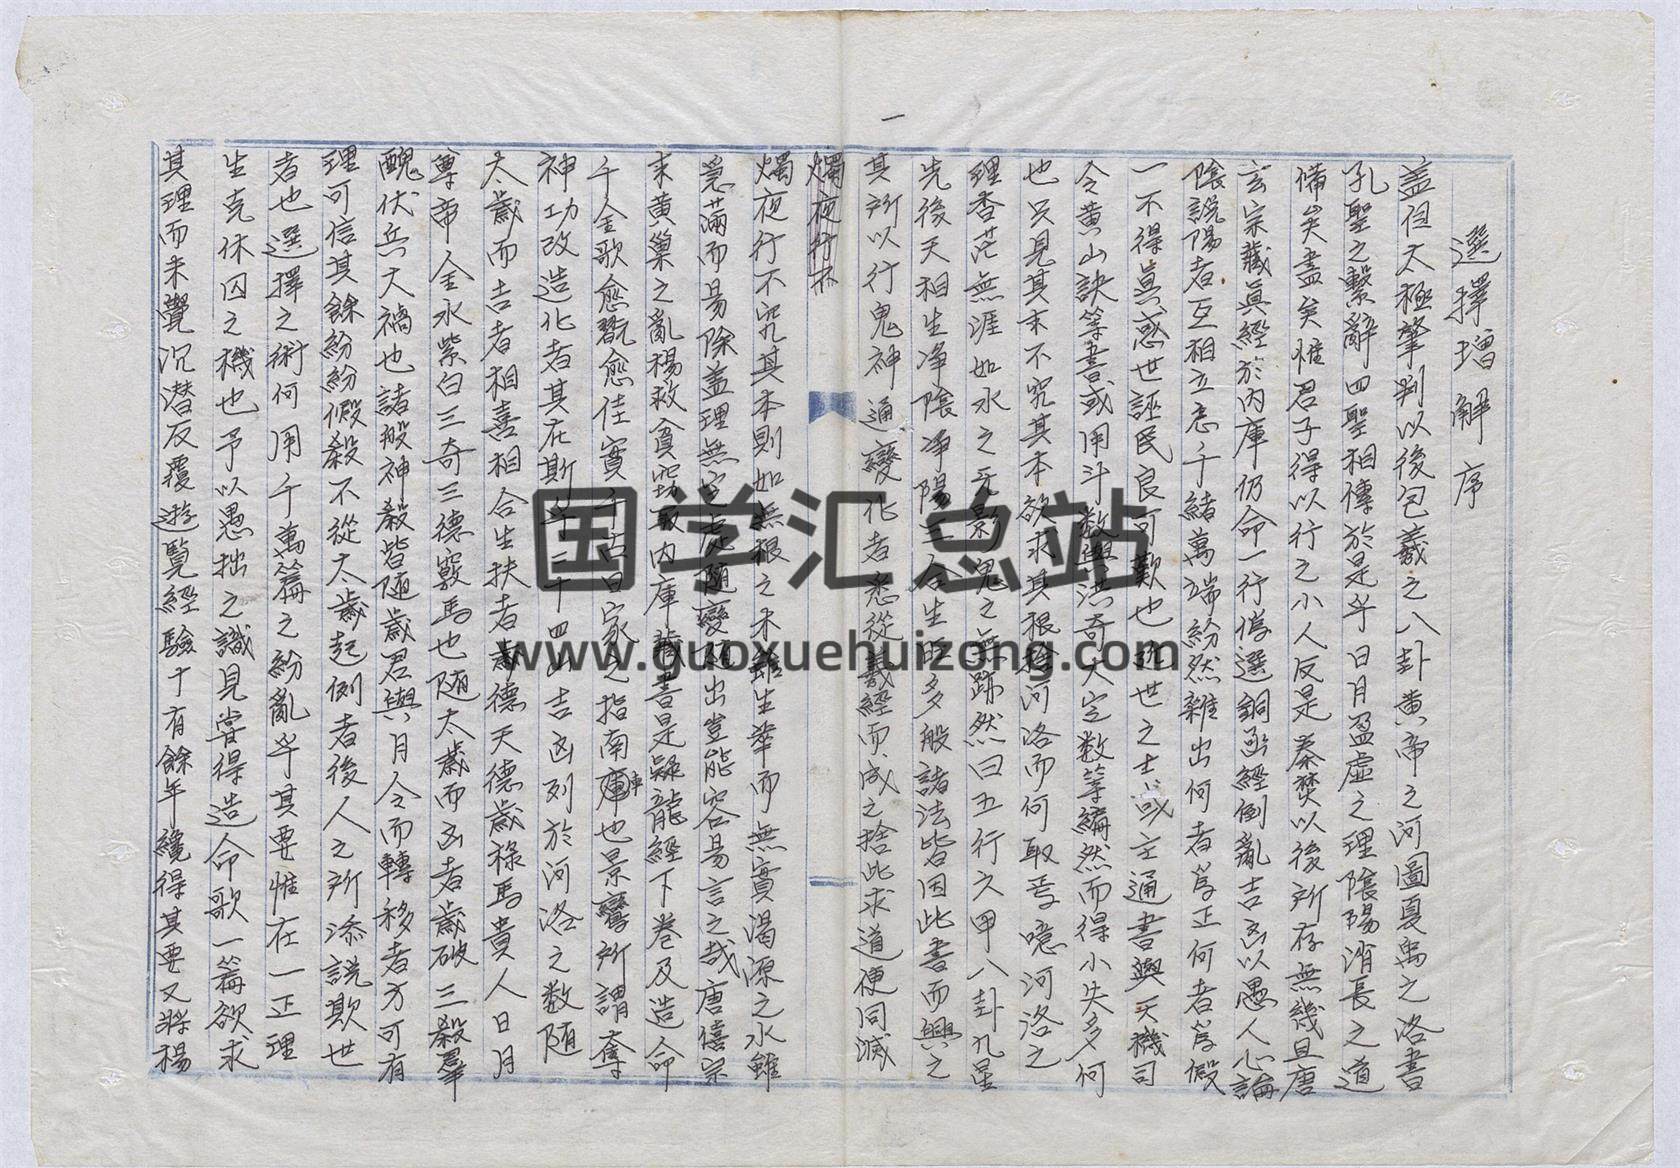 一
選擇增解序
盖但太極肇判以後包羲之八卦黄帝之河圖夏禹之洛書
孔聖之繫辭四聖相傳於是乎日月盈虚之理陰陽消長之道
備矣盡矣惟君子得以行之小人反是秦焚以後所存無幾且唐
玄宗藏眞經於内庫仍命一行僞選銅函經倒亂吉凶以愚人心論
陰説陽者互相立意千緒萬端紛然雜出何者爲正何者爲假
一不得眞惑世誣民良可歎也近世之士或主通書與天機司
今黄山訣等書或用斗数與洪奇大定数等編然而得小失多何
也只見其末不究其本欲求其根除河洛而何取焉噫河洛之
理杳茫無涯如水之无影鬼之無跡然曰五行六甲八卦九星
先後天相生净陰净陽三合生旺多般諸法皆因此書而興之
其所以行鬼神通變化者悉從羲經而成之捨此求道便同滅
燭夜行不
燭夜行不究其本則如無根之木雖生華而無實渴源之水雖
覓滿而易除盖理無定處隨變随出豈能容易言之哉唐僖宗
末黄巢之亂楊救貧窃取内庫藏書是疑龍經下卷及造命
千金歌愈翫愈佳實千古日家之指南車也景鸞所謂奪
神功改造化者其在斯乎二十四山吉凶列於河洛之数随
太歲而吉者相喜相合生扶者歲德天德歲祿馬貴人日月
尊帝金水紫白三奇三德竅馬也随太歲而凶者歲破三殺羣
醜伏兵大禍也諸般神殺皆隨歲君與月令而轉移者方可有
理可信其餘紛紛假殺不從太歲起例者後人之所添説欺世
者也選擇之術何用千萬篇之紛亂乎其要惟在一正理
生克休囚之機也予以愚拙之識見嘗得造命歌一篇欲求
其理而未覺沉潜反覆遊覧經驗十有餘年纔得其要又將楊
国学汇总站
www.guoxuehuizong.com